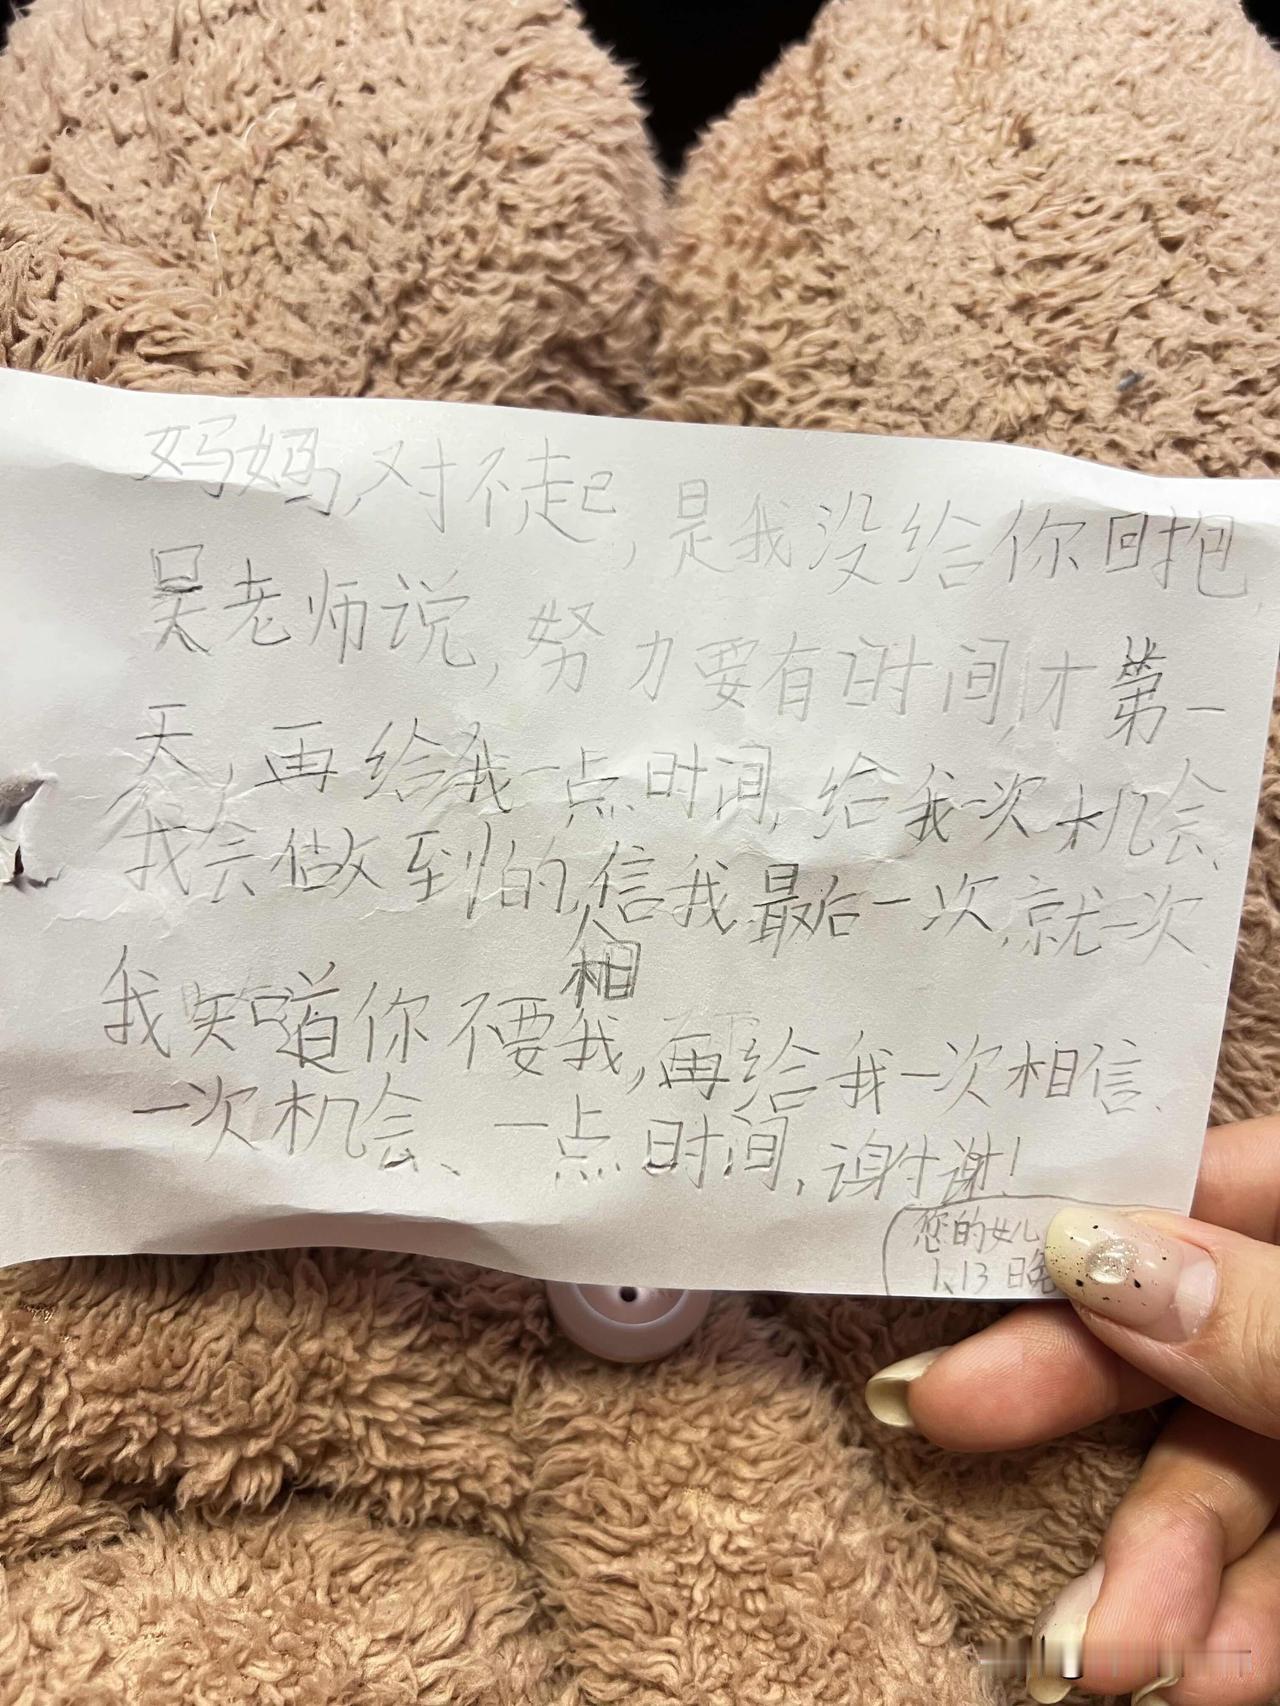 妈妈,对不起,是我没给你回抱,
吴老师说,努力要有时间,才第一
天,再给我一点时间,给我一次机会、
我会做到怕的,信我最后一次,就一次、
相
我知道你不要我,再给我一次相信、
一次机会、一点时间,谢谢!
您的女儿
1、13 晚